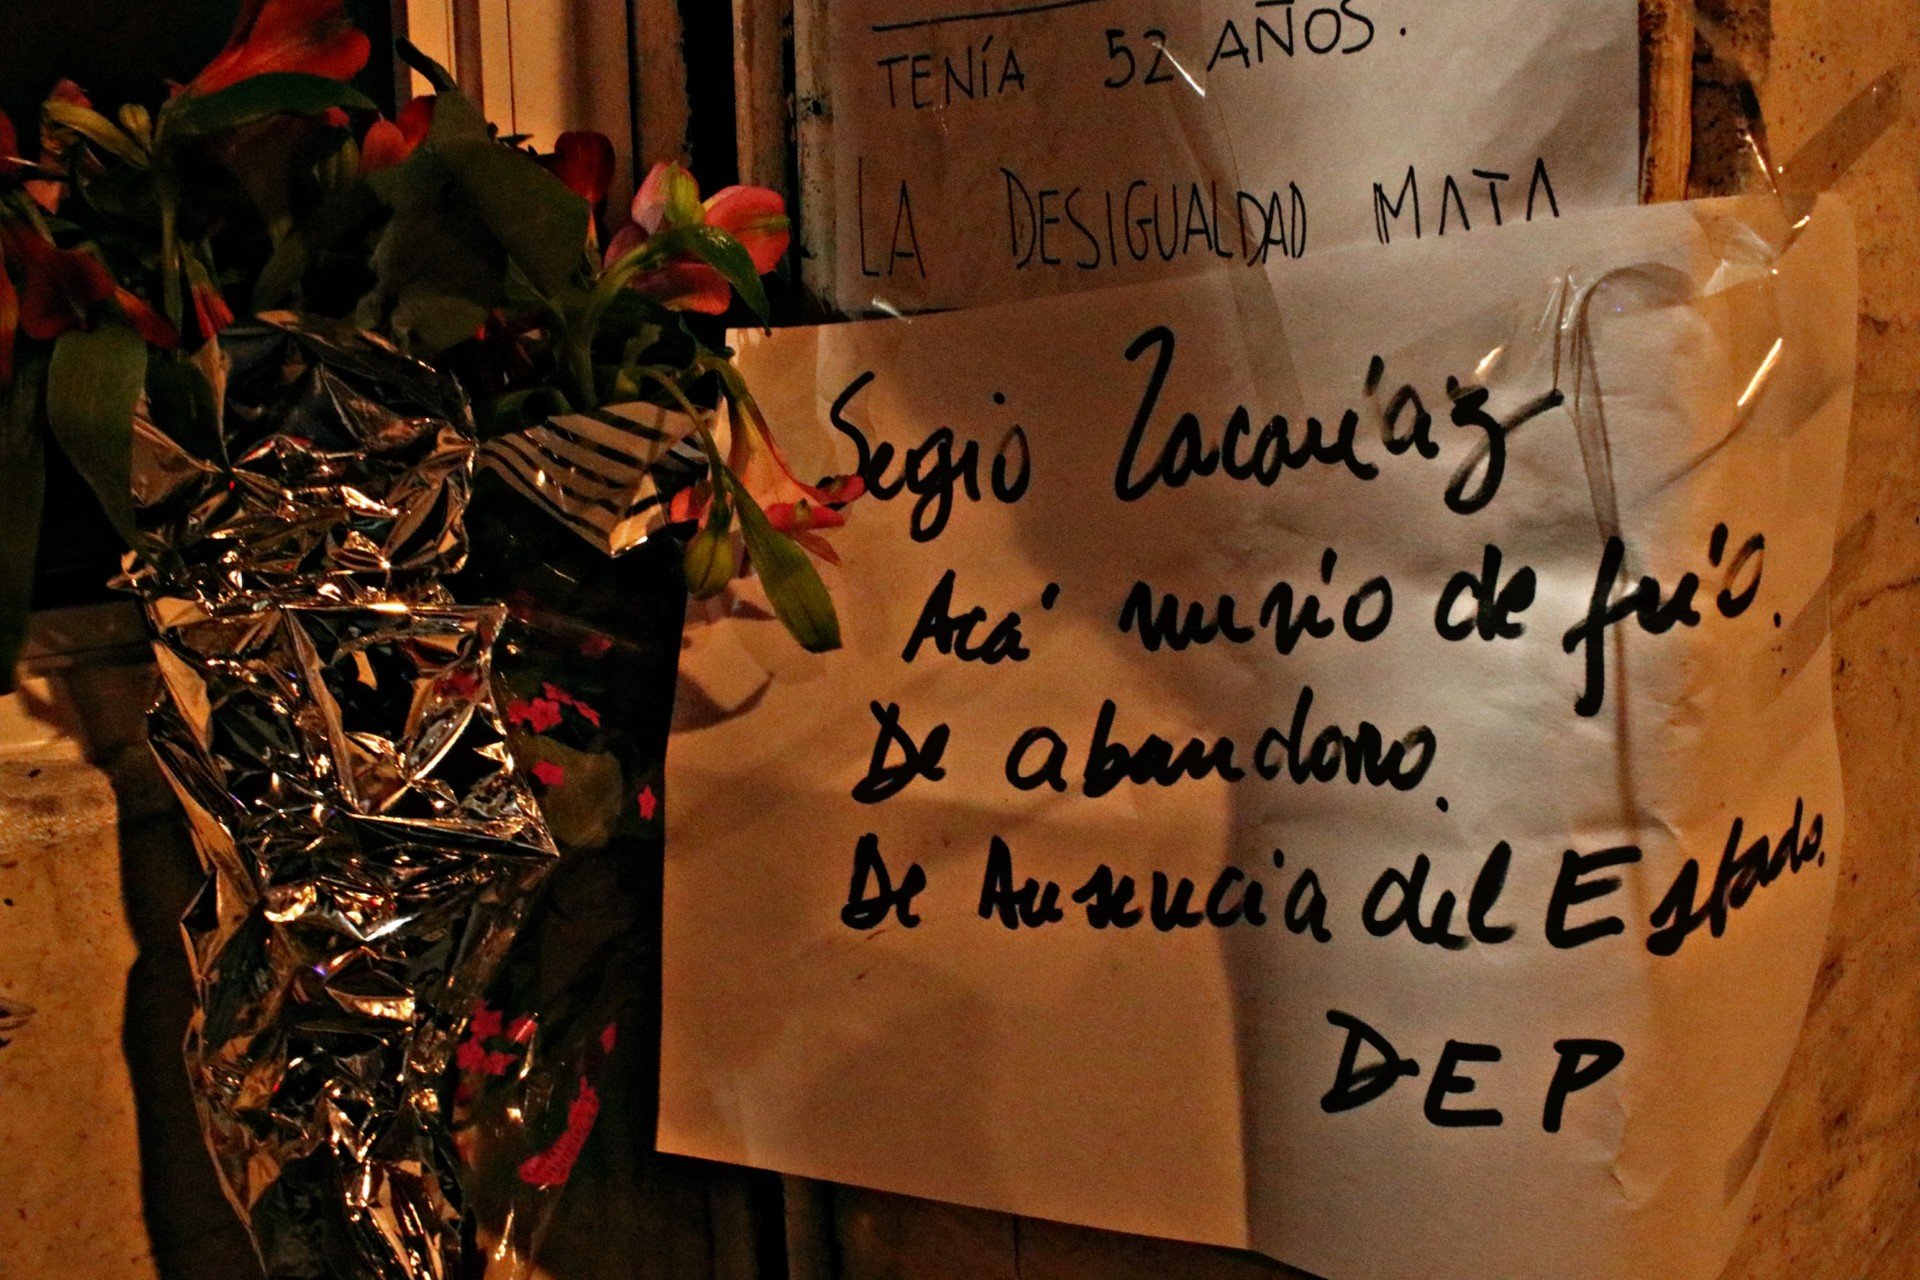 TENÍA 52 AÑOS.
LA DESIGUALDAD MATA
Sergio Zacaríaz
Acá murio de frío.
De abandono.
De Ausencia del Estado.
DEP